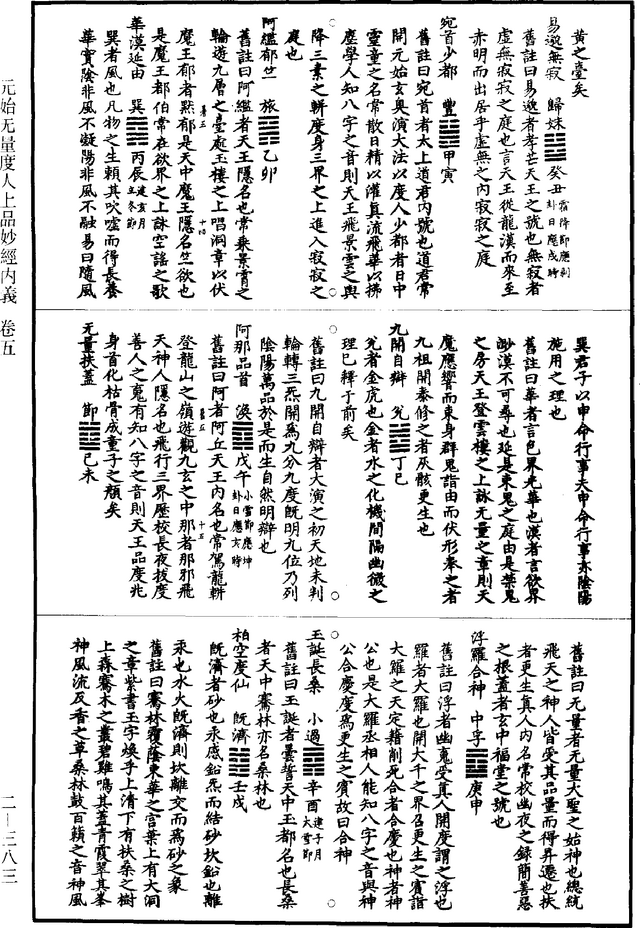 黃之臺矣
易邈無寂　歸妹䷵癸丑霜降節應剥卦日應戌時
舊註曰易邈者孝芒天王之號也無寂者
虛無寂寂之庭也言天王從龍漢而來至
赤明而出居乎虛無之内寂寂之庭
宛首少都　豐䷶甲寅
舊註曰宛首者太上道君内號也道君常
開元始玄奥演大法以度人少都者日中
靈童之名常散日精以灌真流飛華以拂
塵學人知八字之音則天王飛景雲之輿
降三素之軿度身三界之上進入寂寂之
庭也
阿𦆯郁竺　旅䷷乙卯
舊註曰阿𦆯者天王隱名也常乘景霄之
輪遊九層之臺處玉樓之上唱洞章以伏
魔王郁者黙郁是天中魔王隱名竺欲也
是魔王都伯常在欲界之上詠空謡之歌
華漠延由　巽䷸丙辰建亥月立冬節
巽者風也凡物之生頼其吹嘘而得長養
華實陰非風不凝陽非風不融易曰隨風
巽君子以申命行事夫申命行事亦陰陽
施用之理也
舊註曰華者言色界光華也漠者言欲界
渺漠不可尋也延是東鬼之庭由是榮鬼
之房天王登雲樓之上詠无量之章則天
魔應響而束身群鬼詣由而伏形奉之者
九祖開泰修之者灰骸更生也
九開自辯　兌䷹丁巳
兌者金虎也金者水之化機間隔幽微之
理已釋于前矣
舊註曰九開自辯者大演之初天地未判
輪轉三炁開爲九分九度既明九位乃列
陰陽萬品於是而生自然明辯也
阿那品首　渙䷺戊午小雪節應坤卦日應亥時
舊註曰阿者阿丘天王内名也常駕龍軿
登龍山之嶺遊觀九玄之中那者那邪飛
天神人隱名也飛行三界歷校長夜拔度
善人之䰟有知八字之音則天王品度兆
身首化枯骨成童子之顔矣
无量扶蓋　節䷻己未
舊註曰无量者无量大聖之始神也總統
飛天之神人皆受其品量而得昇遷也扶
者更生真人内名常校幽夜之録簡善惡
之根蓋者玄中福堂之號也
浮羅合神　中孚䷼庚申
舊註曰浮者幽䰟受真人開度謂之浮也
羅者大羅也開大千之界召更生之賓詣
大羅之天定籍削死合者合慶也神者神
公也是大羅丞相人能知八字之音與神
公合慶度爲更生之賓故曰合神
玉誕長桑　小過䷽辛酉建子月大雪節
舊註曰玉誕者曇誓天中玉都名也長桑
者天中騫林亦名桑林也
栢空度仙　既濟䷾壬戌
既濟者砂也汞感鉛炁而結砂坎鉛也離
汞也水火既濟則坎離交而爲砂之象
舊註曰騫林覆蔭東華之言葉上有大洞
之章紫書玉字煥乎上清下有扶桑之樹
上森騫木之叢碧雞鳴其蓋青霞翠其峯
神風流反香之草桑林鼓百籟之音神風
卷五　十四
卷五　十五
元始无量度人上品妙經内義　卷五
二—三八三